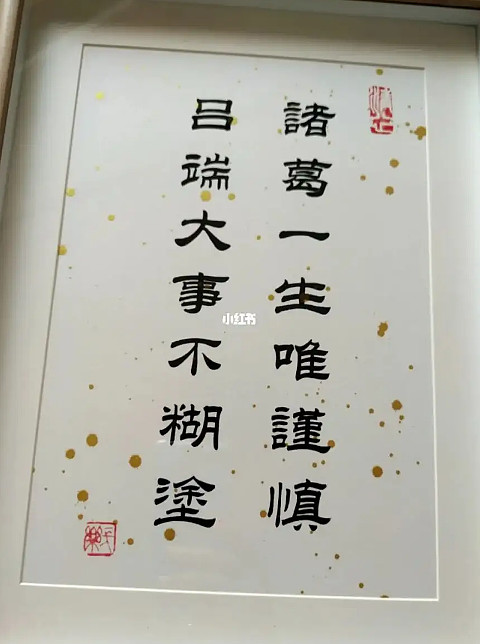 諸葛一生唯謹慎
吕端大事不糊塗
小红书